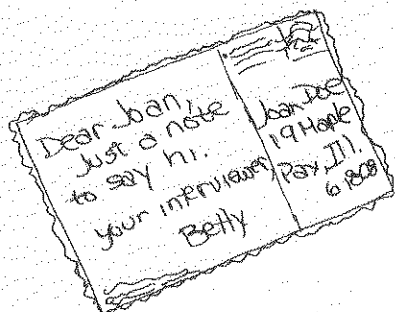 Dear Joan,
Just a note
to say hi.
your interviewer,
Betty
Joan Doe
19 Maple
Pax, Ill.